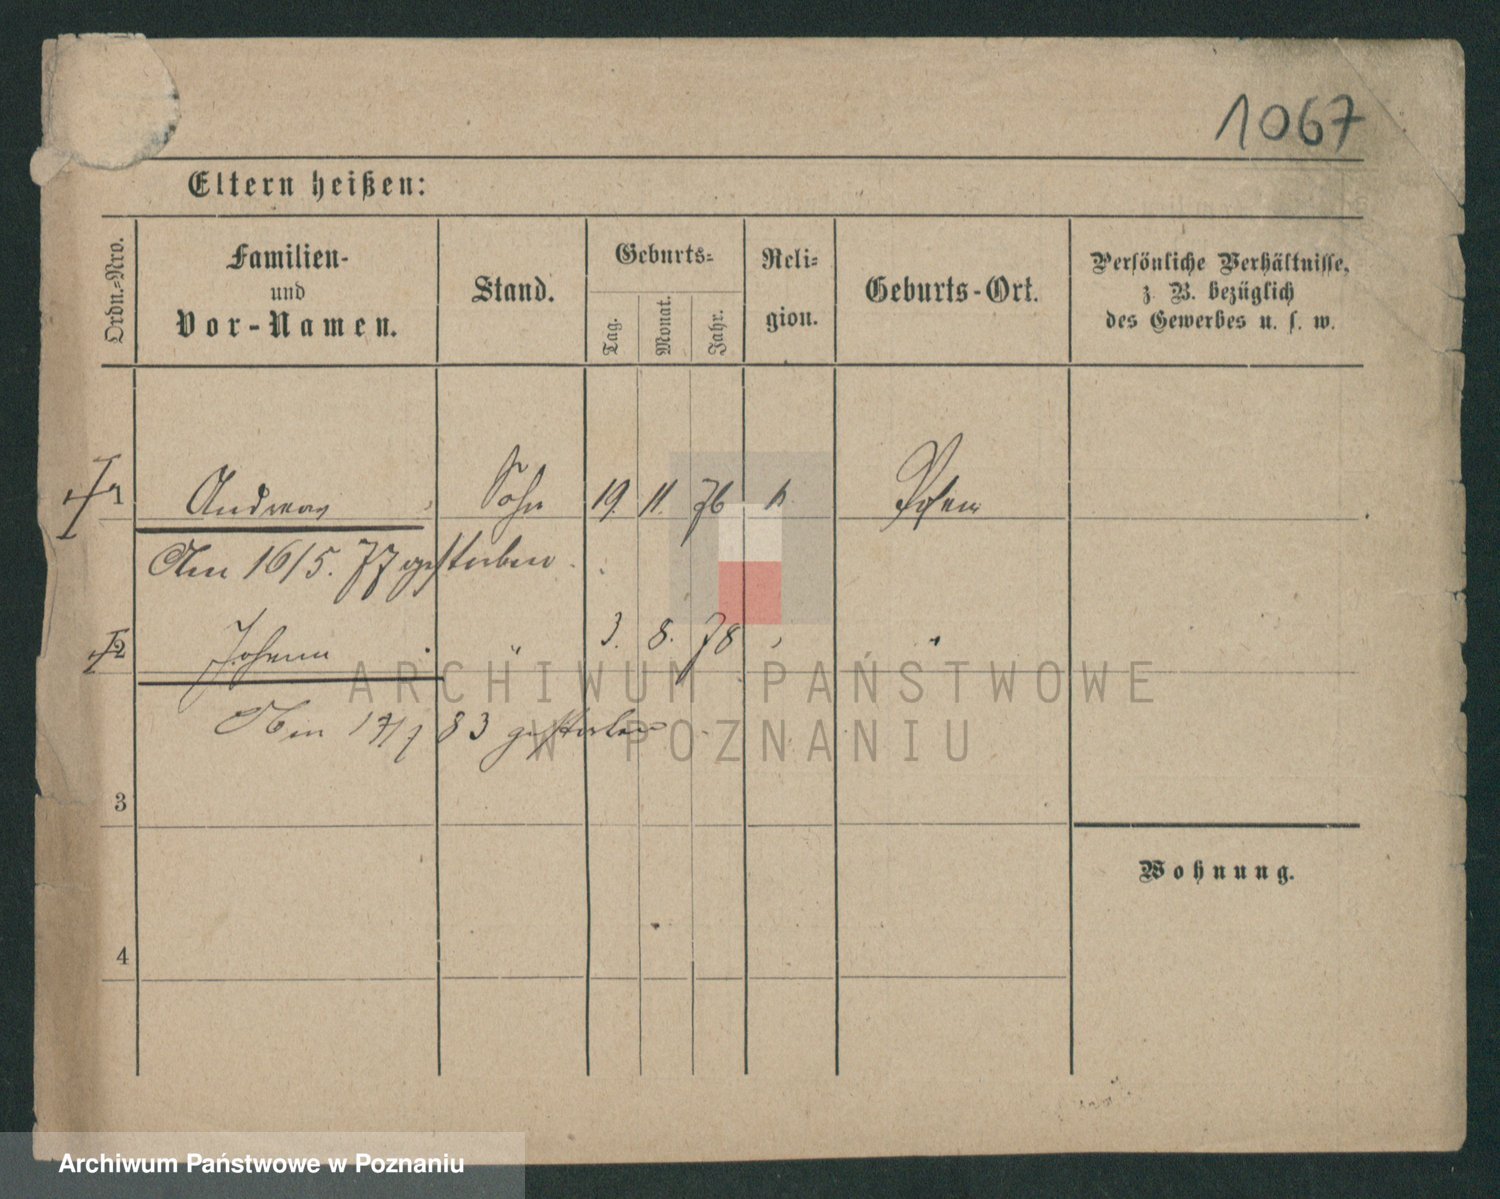 1067
Eltern heißen:
Ordn.-Nro.
Familien-
und
Vor-Namen.
Stand.
Geburts-
Tag.
Monat.
Jahr.
Reli-
gion.
Geburts-Ort.
Persönliche Verhältnisse,
z. B. bezüglich
des Gewerbes u. s. w.
1 Andreas Sohn 19. 11. 76 k Posen
Am 16/5. 77 gestorben
2 Johann " 3. 8. 78 "
gestorben
3
Wohnung.
4
ARCHIWUM PAŃSTWOWE
W POZNANIU
Archiwum Państwowe w Poznaniu